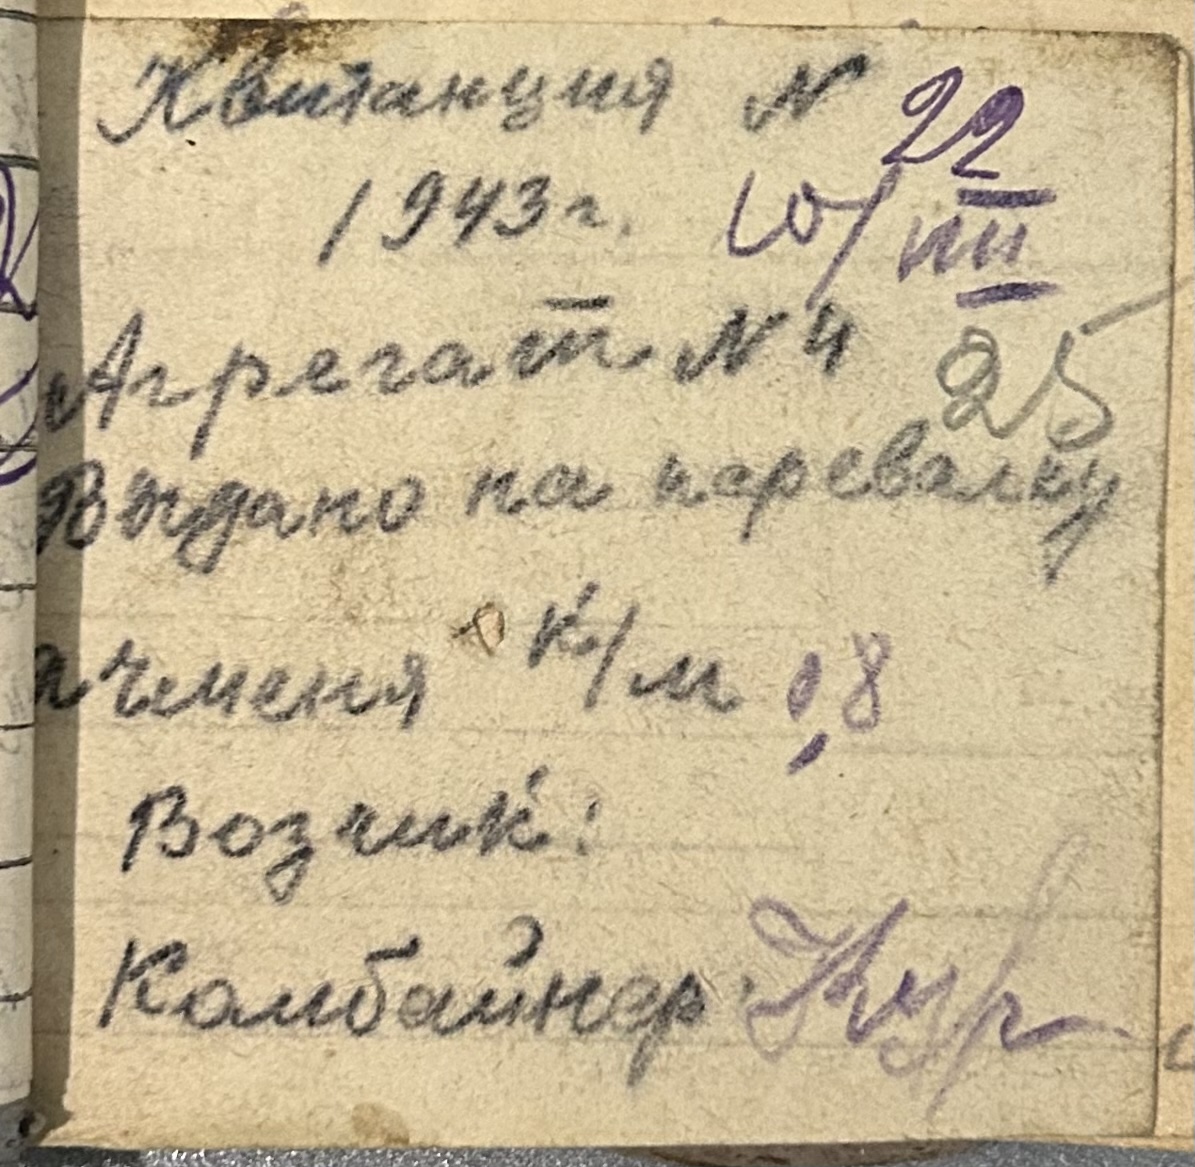 Квитанция N 22
1943 г. 10/VIII
Агрегат N 4 25
Выдано на перевалку
ячменя к/м 0,8
Возчик:
Комбайнер: